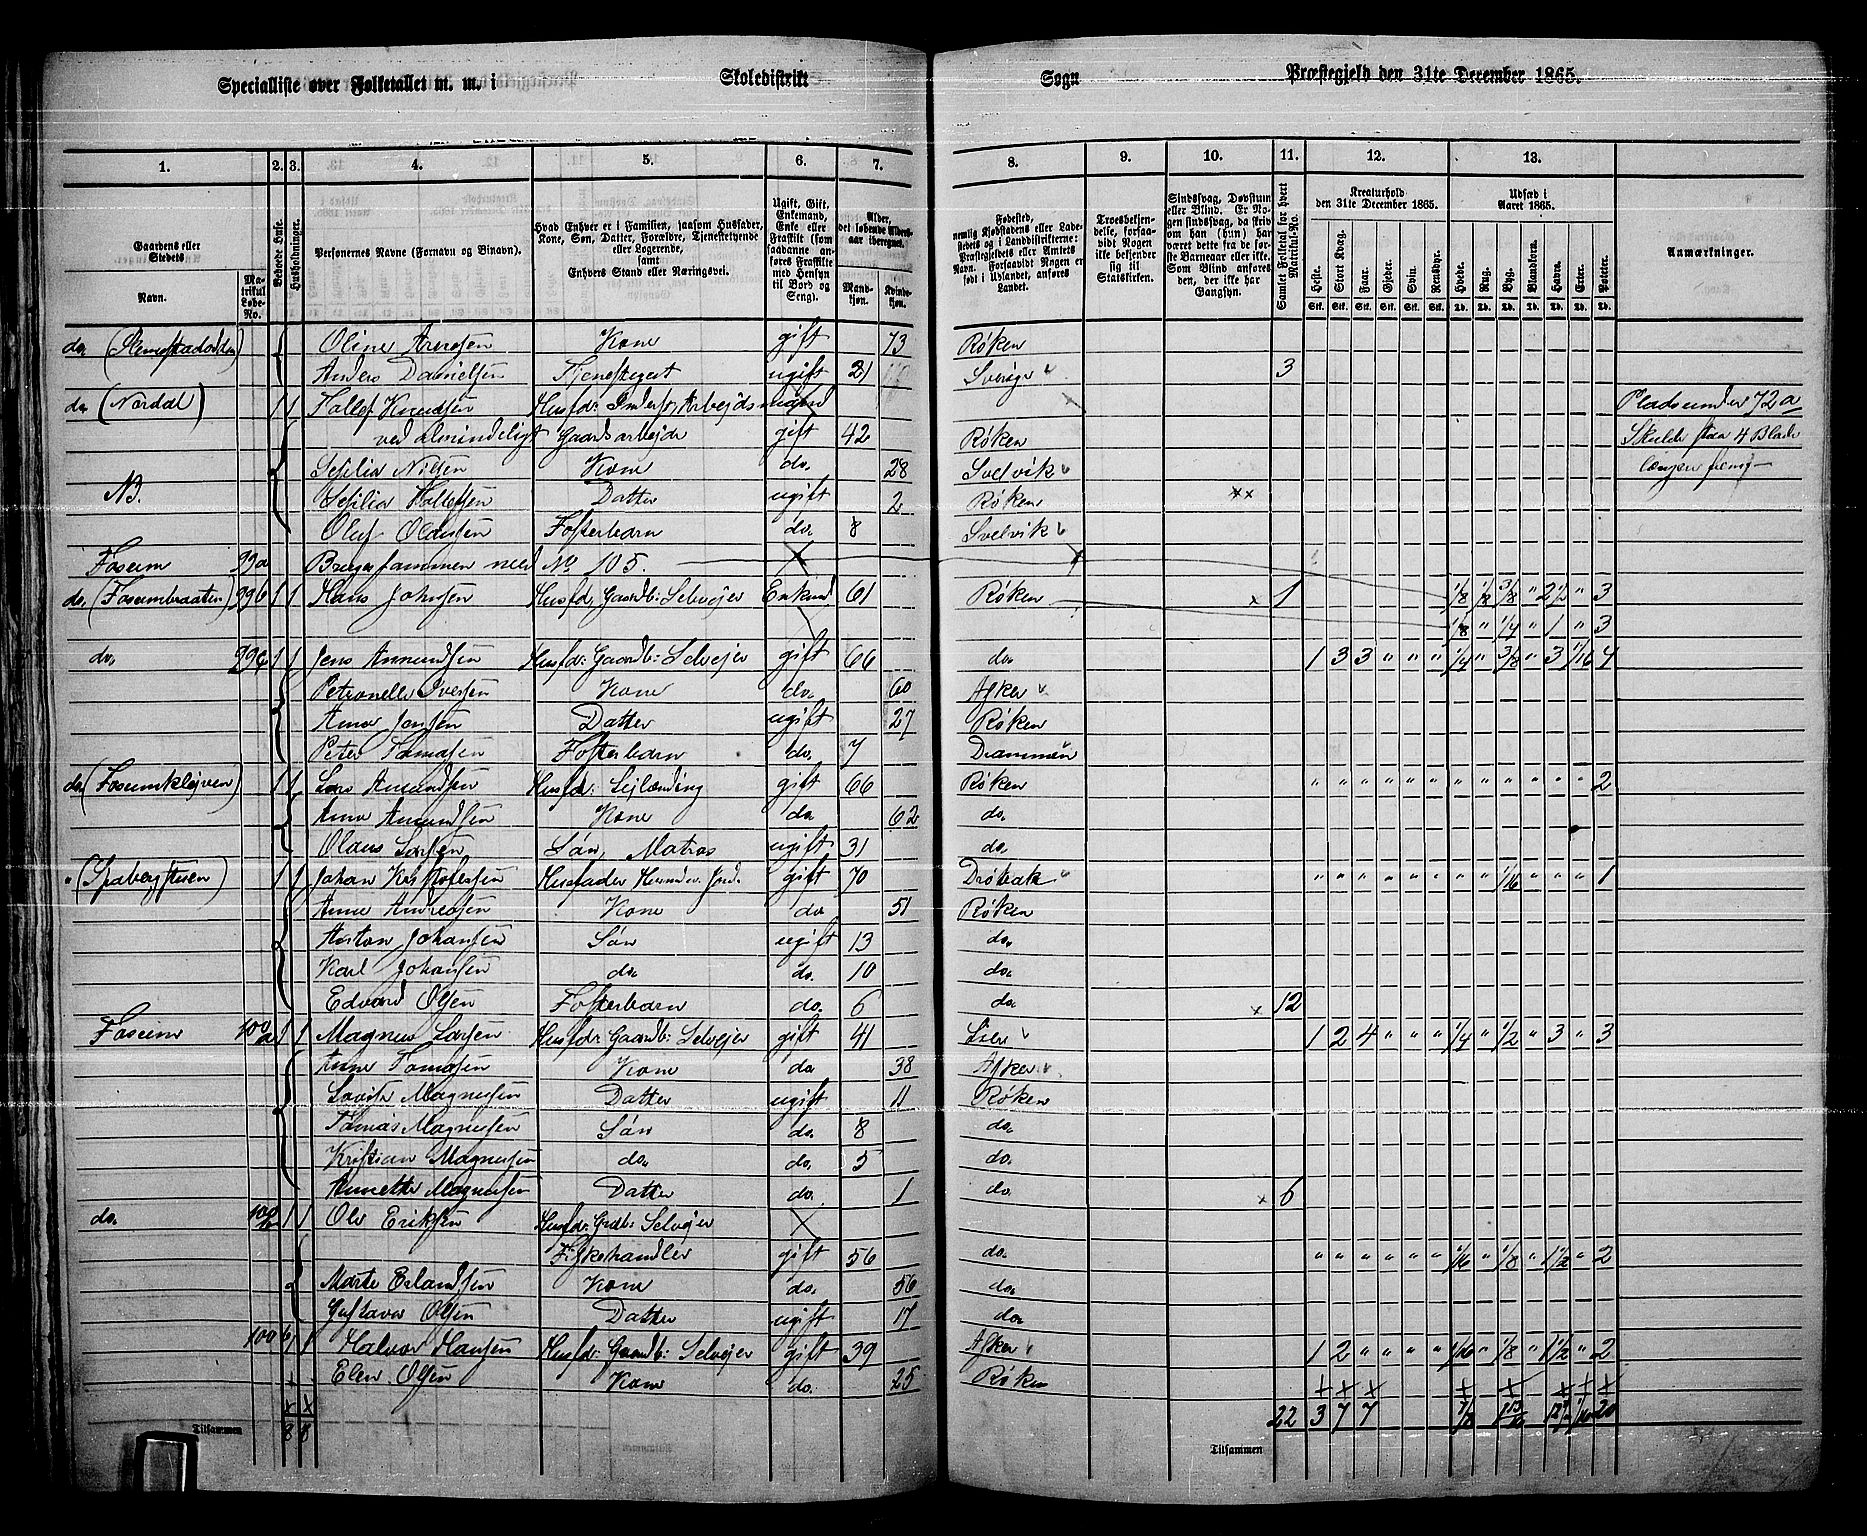 Specialliste over Folketallet m. m. i Skoledistrikt Sogn Præstegjeld den 31te December 1865.
1. 2. 3. 4. 5. 6. 7. 8. 9. 10. 11. 12. 13.
Gaardens eller Stedets Navn. Matrikul Løbe-No. Beboede Huse. Husholdninger. Personernes Navne (Fornavn og Binavn). Hvad Enhver er i Familien, saasom Husfader, Kone, Søn, Datter, Forældre, Tjenestetyende eller Logerende, samt Enhvers Stand eller Næringsvei. Ugift, Gift, Enkemand, Enke eller Fraskilt (som saadanne anføres Fraskilte med Hensyn til Bord og Seng). Alder, det løbende Aldersaar iberegnet. Mandkjøn. Kvindekjøn. Fødested, nemlig Kjøbstadens eller Ladestedets og i Landdistrikterne: Præstegjeldets eller Amtets Navn. Forsaavidt Nogen er født i Udlandet, anføres Landet. Troesbekjendelse, forsaavidt Nogen ei bekjender sig til Statskirken. Sindssvag, Døvstum eller Blind. Er Nogen sindssvag, da skriv om han (hun) har været dette fra de første Barneaar eller ikke. Som Blind anføres den, der ikke har Gangsyn. Samlet Folketal for hvert Matrikul-No. Kreaturhold den 31te December 1865. Udsæd i Aaret 1865. Anmærkninger.
Heste. Stort Kvæg. Faar. Gjeder. Svin. Rensdyr. Hvede. Rug. Byg. Blandkorn. Havre. Erter. Poteter.
Stk. Stk. Stk. Stk. Stk. Stk. Td. Td. Td. Td. Td. Td. Td.
do. Oline Kone gift 73 Røken
Anders Danielsen Tjenestegut ugift 21 Sverige 3
do. (Nordal) 1 1 Tollef Knudsen Husfd: Inderst, Arbejdsmand Plads under 72a
ved almindeligt Gaardsarbejde gift 42 Røken 4 Blade
Sesilia Nilsen Kone do. 28 Svelvik længer
NB. Sesilia Tollefsen Datter ugift 2 Røken xx
Oluf Fosterbarn do. 8 Svelvik
Foseim 99a Bruges sammen med No 105.
do. (Foseimbraaten) 99b 1 1 Hans Johnsen Husfd, Gaardb: Selvejer Enkmd 61 Røken x 1 1/8 1/8 3/8 " 2 1/2 " 3
1/8 " 1/4 " 1 " 3
do. 99c 1 1 Jens Amundsen Husfd: Gaardb: Selvejer gift 66 do. 1 3 3 " " " 1/4 " 3/8 " 3 1/16 4
Petronelle Iversen Kone do. 60 Asker
Anne Jensen Datter ugift 27 Røken
Peter Tomasen Fosterbarn do. 7 Drammen
do. (Foseimklejven) 1 1 Lars Amundsen Husfd: Lejlænding gift 66 Røken " " " " " " " " " " " " 2
Anne Amundsen Kone do 62 do.
Olaus Larsen Søn, Matros ugift 31 do.
" 1 1 Johan Kristofersen Husfader Husmd m. Jord. gift 70 Drøbak " " " " " " " " 1/16 " " " 1
Anne Andreasen Kone do 51 Røken
Anton Johansen Søn ugift 13 do.
Karl Johansen do. do. 10 do.
Edvard Olsen Fosterbarn do. 6 do. x 12
Foseim 100a 1 1 Magnus Larsen Husfd: Gaardb: Selvejer gift 41 Lier 1 2 4 " " " 1/4 " 1/2 " 3 " 3
Anne Tomasen Kone do 38 Asker
Lovise Magnussen Datter ugift 11 Røken
Tomas Magnussen Søn do. 8 do.
Kristian Magnussen do. do. 5 do.
Annette Magnussen Datter do. 1 do. x 6
do. 100b 1 1 Ole Eriksen Husfdr: Grdb: Selvejer
Fiskehandler gift 56 do. " " " " " " 1/16 " 1/8 " 1 1/2 " 2
Marte Erlandsen Kone do. 56 do.
Gustava Olsen Datter ugift 17 do.
100b 1 1 Halvor Hansen Husfd: Gaardb: Selvejer gift 39 Asker 1 2 " " " " 1/16 " 1/8 " 1 1/2 " 2
Elen Olsen Kone do. 25 Røken
Tilsammen 8 8 Tilsammen 22 3 7 7 7/8 20